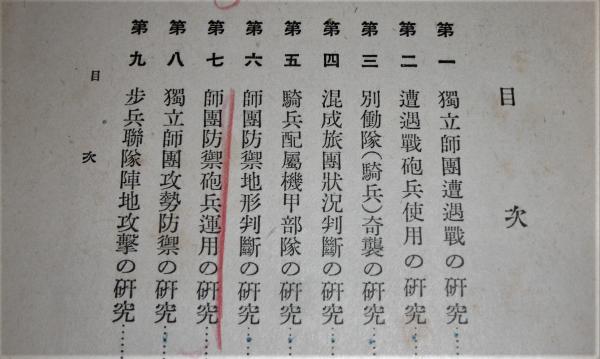 目次
第一 獨立師團遭遇戰の研究……
第二 遭遇戰砲兵使用の研究……
第三 別働隊(騎兵)奇襲の研究……
第四 混成旅團狀況判斷の研究……
第五 騎兵配屬機甲部隊の研究……
第六 師團防禦地形判斷の研究……
第七 師團防禦砲兵運用の研究……
第八 獨立師團攻勢防禦の研究……
第九 步兵聯隊陣地攻擊の研究……
目次